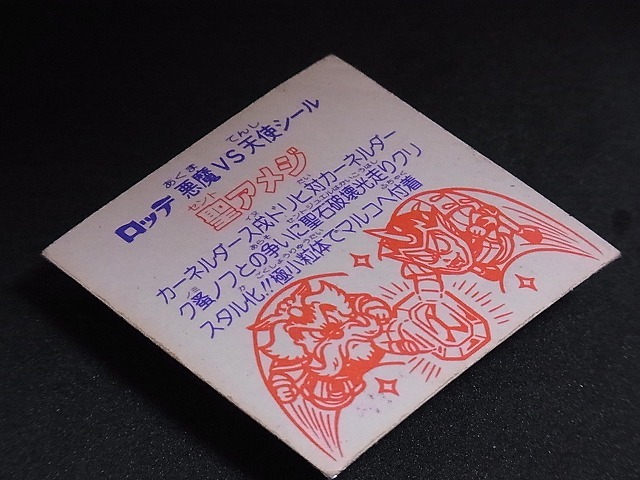 ロッテ 悪魔VS天使シール
聖アメジ
カーネルダース戌ドリヒ対カーネルダー
ク蚤ノフとの争いに聖石破壊光走りクリ
スタル化!!極小粒体でマルコへ付着